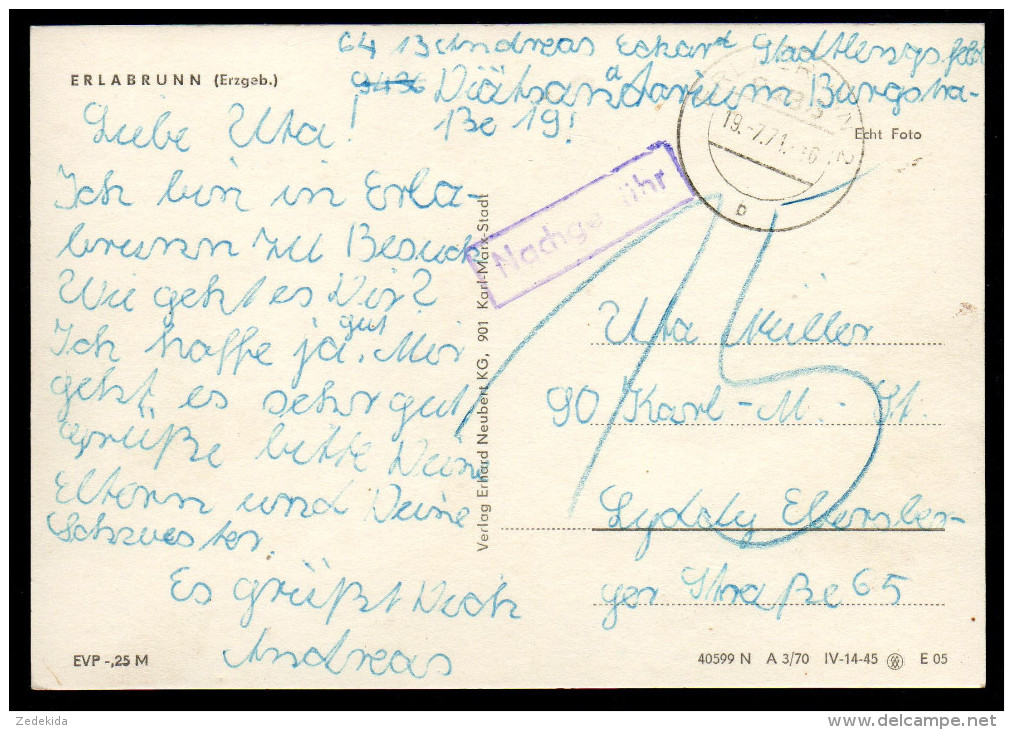 64 13 Andreas Eckard Stadtlengsfeld
Diätsanatorium Burgstra-
ße 19!
ERLABRUNN (Erzgeb.)
Echt Foto
19.-7.71.-16
b
Liebe Uta!
Ich bin in Erla-
brunn zu Besuch
Wie geht es Dir?
Ich hoffe ja gut. Mir
geht es sehr gut
Grüße bitte Deine
Eltern und Deine
Schwester.
Es grüßt Dich
Andreas
EVP -,25 M
Verlag Erhard Neubert KG, 901 Karl-Marx-Stadt
Nachgebühr
15
Uta Müller
90 Karl-M.-St.
Lyddy Ebersber-
ger Straße 65
40599 N A 3/70 IV-14-45 E 05
Zedekida
www.delcampe.net